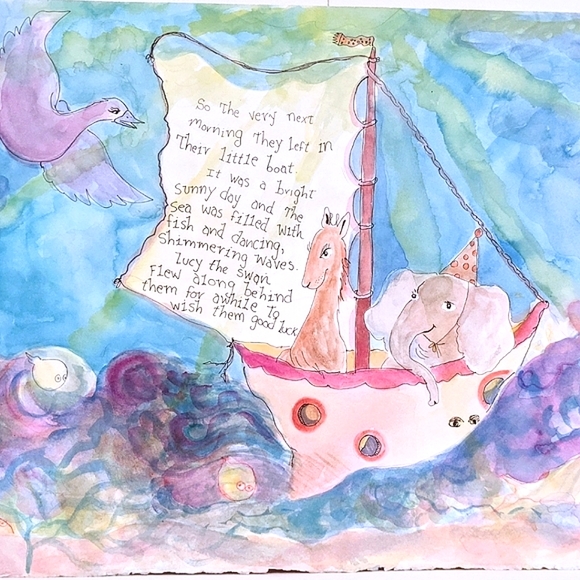 So The very next
morning They left in
Their little boat.
It was a bright
Sunny day and The
Sea was filled with
fish and dancing,
Shimmering waves.
lucy the swan
Flew along behind
them for awhile To
wish them good luck